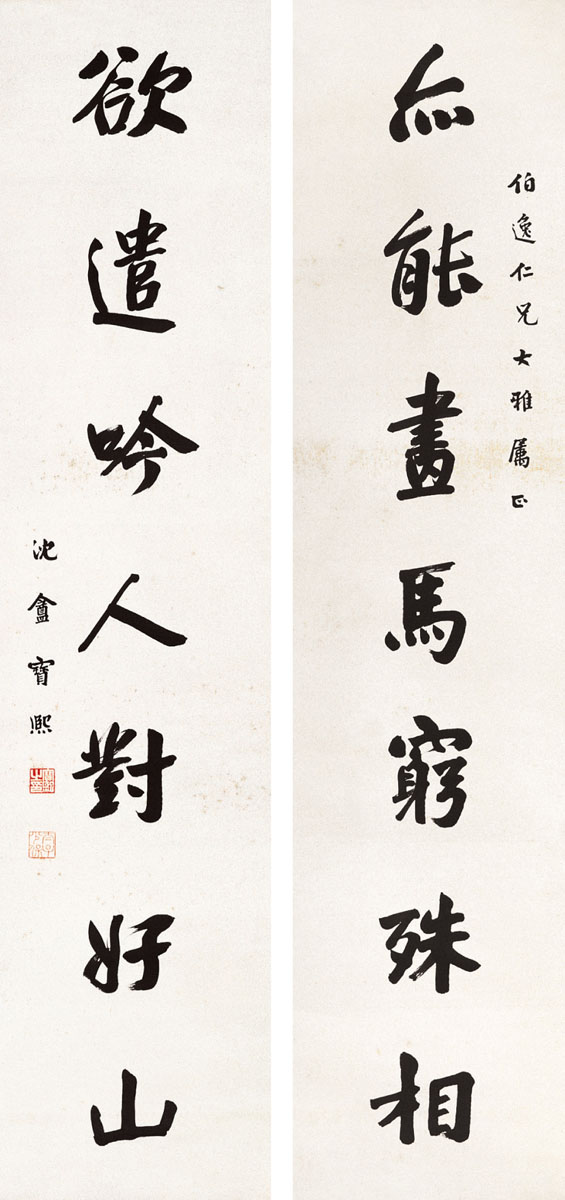 伯逸仁兄大雅属正
亦能畫馬窮殊相
欲遣吟人對好山
沈盦寶熙